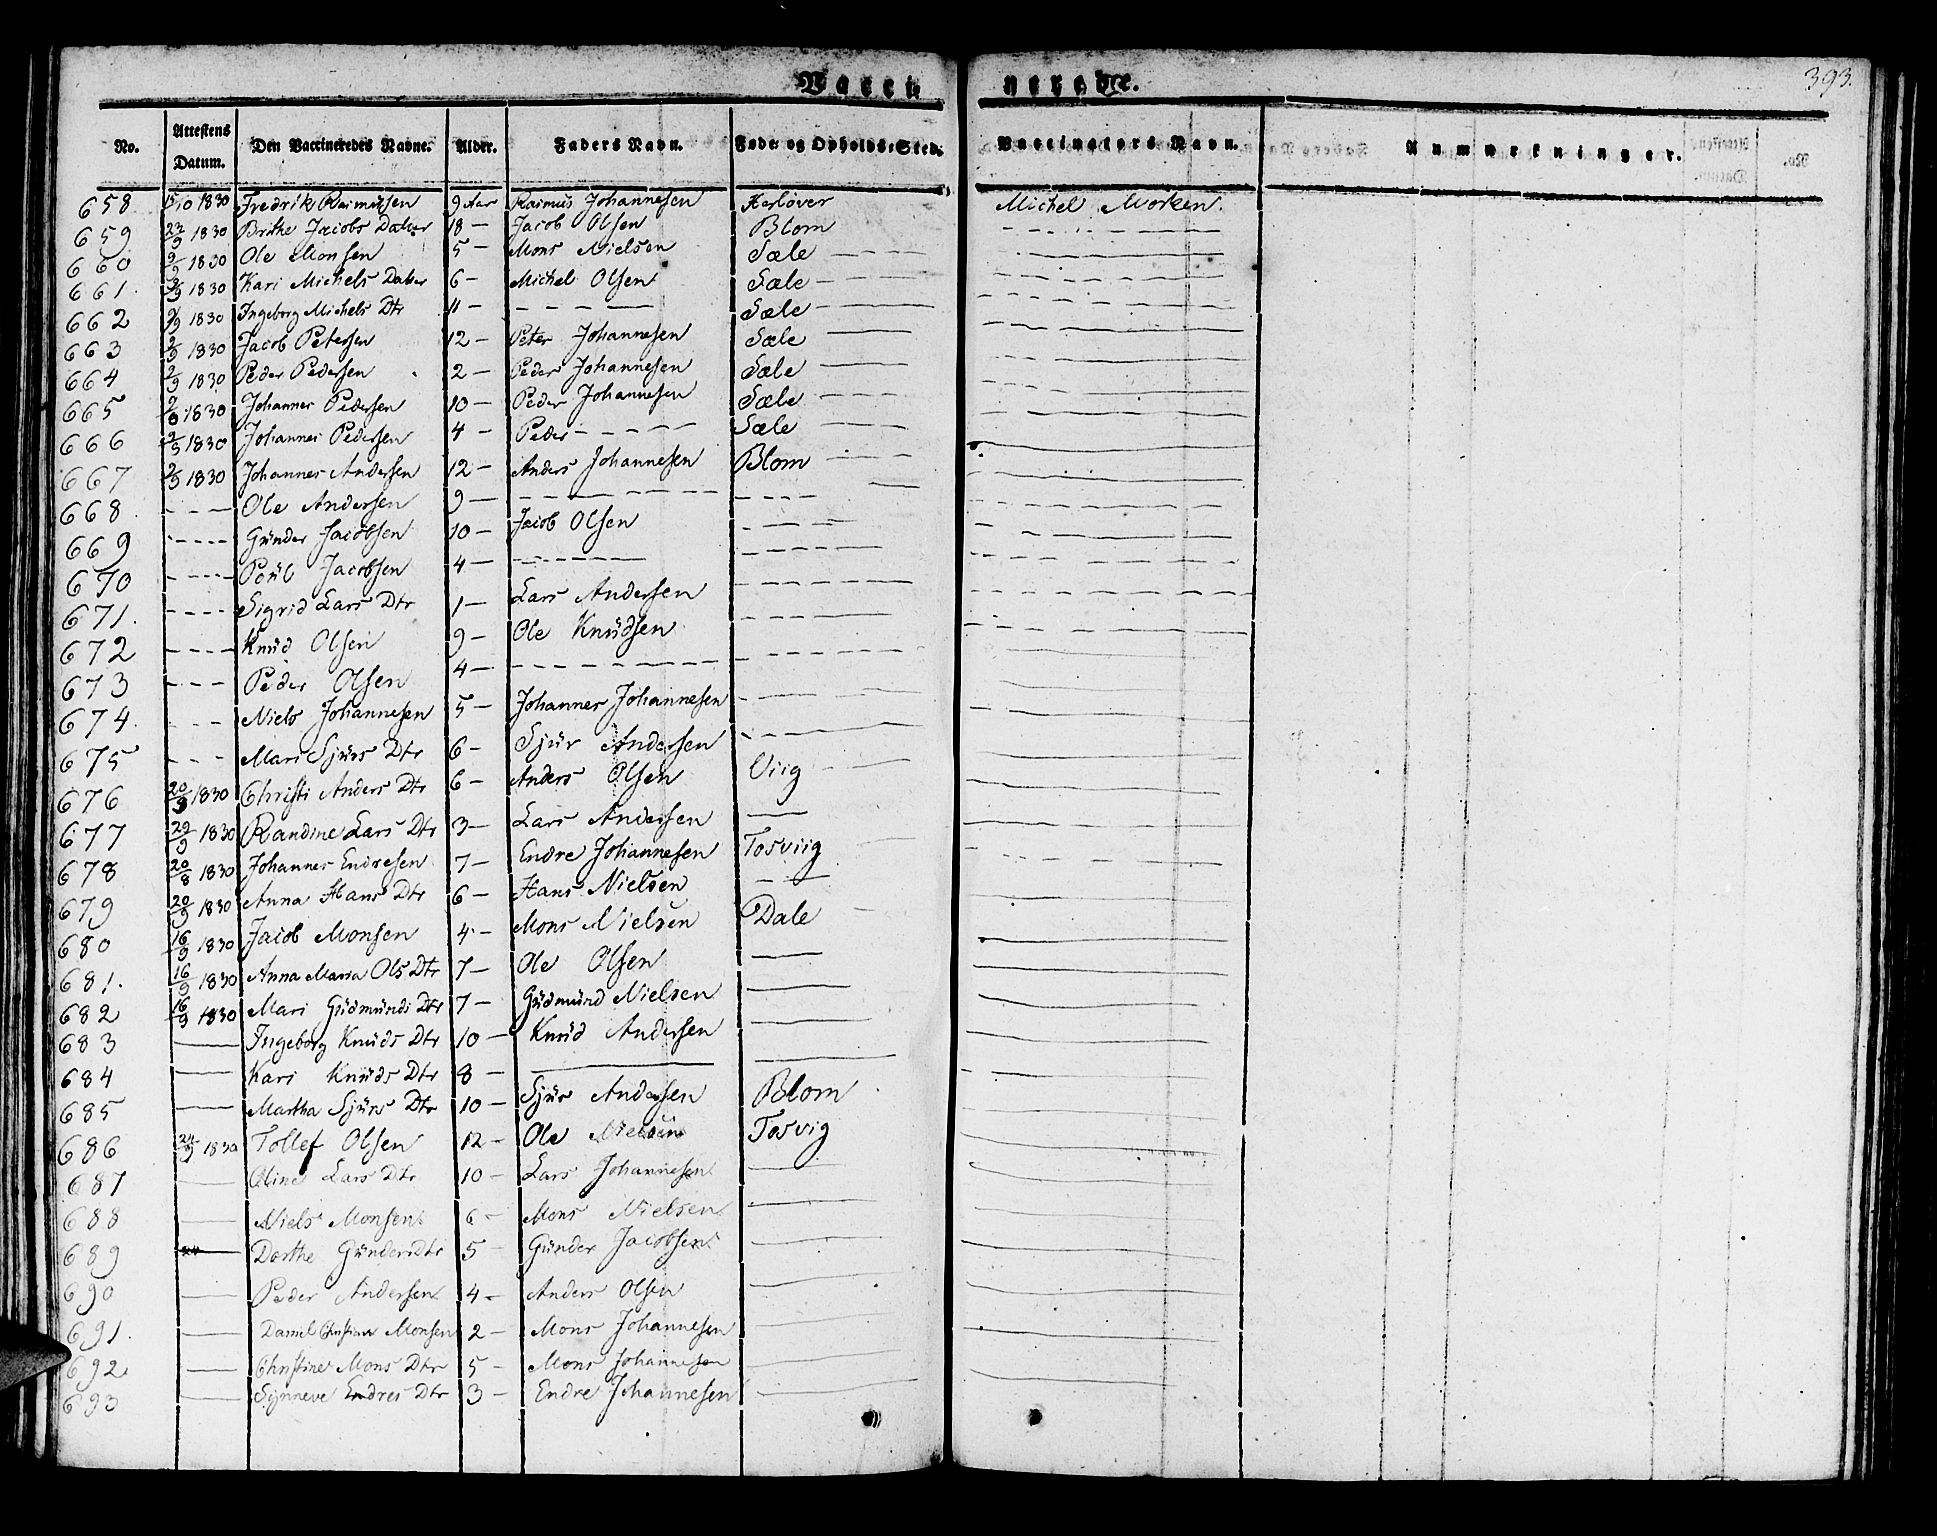 393.
Vaccinerede.
No. Attestens Datum. Den Vaccineredes Navne. Alder. Faders Navn. Føde- og Opholds-Sted. Vaccinators Navn. Anmærkninger.
658 15/10 1830 Fredrik Rasmusen 9 Aar Rasmus Johannesen Herløver Michel Morken
659 1830 Brithe Jacobs Datter 18 — Jacob Olsen Blom — — —
660 1830 Ole Monsen 5 — Mons Nielsen Sæle — — —
661. 1830 Kari Michels Datter 6 — Michel Olsen Sæle — — —
662 1830 Ingeborg Michels Dtr 11 — — — — — Sæle — — —
663 1830 Jacob Petersen 12 — Peter Johannesen Sæle — — —
664 2/9 1830 Peder Pedersen 2 — Peder Johannesen Sæle — — —
665 1830 Johannes Pedersen 10 — Peder Johannesen Sæle — — —
666 1830 Johannes Pedersen 4 — Peder — — — Sæle — — —
667 1830 Johannes Andersen 12 — Anders Johannesen Blom — — —
668. — — — Ole Andersen 9 — — — — — — — — — — —
669 — — — Gunder Jacobsen 10 — Jacob Olsen — — — — — —
670 — — — Poul Jacobsen 4 — — — — — — — — — — —
671. — — — Sigrid Lars Dtr 1 — Lars Andersen — — — — — —
672 — — — Knud Olsen 9 — Ole Knudsen — — — — — —
673 — — — Peder Olsen 4 — — — — — — — — — — —
674. — — — Niels Johannesen 5 — Johannes Johannesen — — — —
675 — — — Mari Sjurs Dtr 6 — Sjur Andersen — — — —
676 1830 Christi Anders Dtr 6 — Anders Olsen Viig — — —
677 1830 Randine Lars Dtr 3 — Lars Andersen — —
678 20/8 1830 Johannes Endresen 7 — Endre Johannesen Tosviig — — —
679 20/9 1830 Anna Hans Dtr 6 — Hans Nielsen — — —
680 16/9 1830 Jacob Monsen 4 — Mons Nielsen Dale —
681. 16/9 1830 Anna Maria Ols Dtr 7 — Ole Olsen — —
682 16/9 1830 Mari Gudmunds Dtr 7 — Gudmund Nielsen — —
683 — Ingeborg Knuds Dtr 10 — Knud Andersen — —
684 — Kari Knuds Dtr 8 — — — —
685 — Martha Sjurs Dtr 10 — Sjur Andersen Blom
686 1830 Tollef Olsen 12 — Ole Nielsen Tosvig —
687 — Oline Lars Dtr 10 — Lars Johannesen — —
688 — Niels Monsen 6 — Mons Nielsen — —
689 — Dorthe Gunders Dtr 5 — Gunder Jacobsen — —
690 — Peder Andersen 4 — Anders Olsen — —
691. — Daniel Christian Monsen 2 — Mons Johannesen — —
692 — Christine Mons Dtr 5 — Mons Johannesen — —
693 — Synneve Endres Dtr 3 — Endre Johannesen —